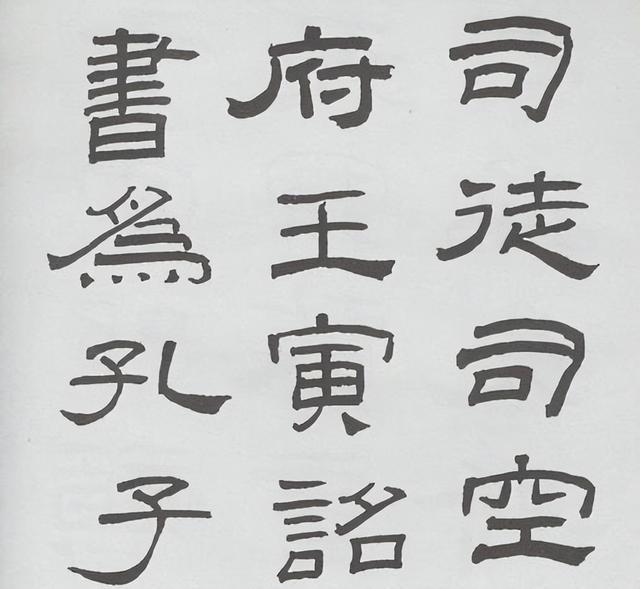 司徒司空
府壬寅詔
書爲孔子